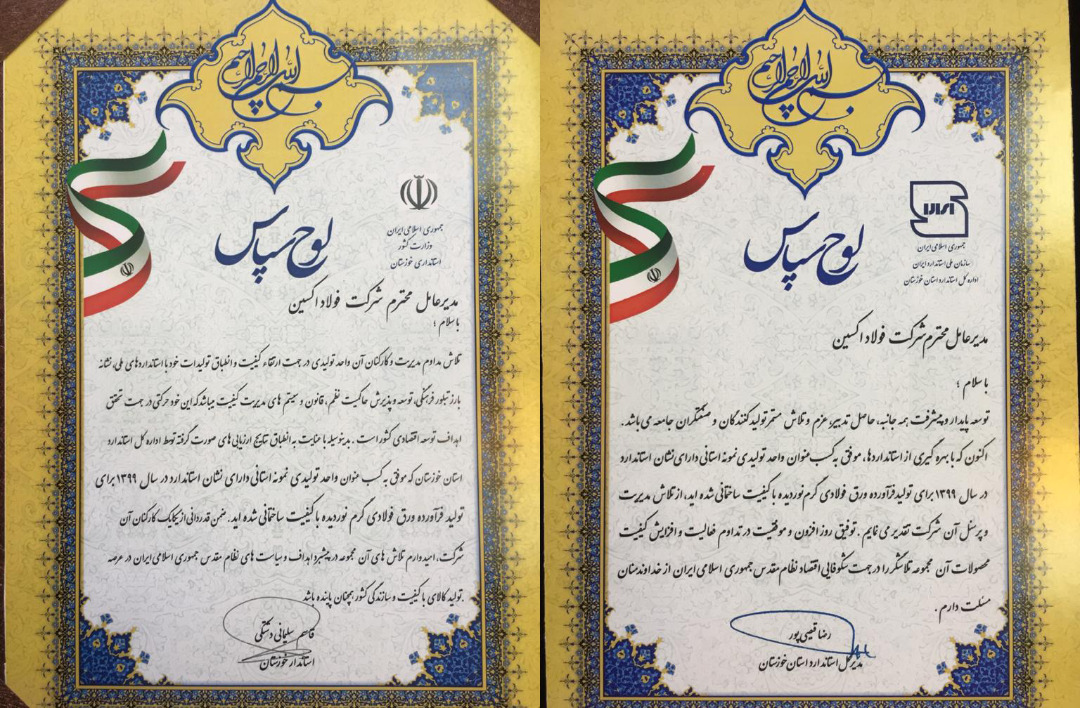 بسم الله الرحمن الرحیم
جمهوری اسلامی ایران
وزارت کشور
استانداری خوزستان
لوح سپاس
مدیرعامل محترم شرکت فولاد اکسین
با سلام ؛
تلاش مداوم مدیریت و کارکنان آن واحد تولیدی در جهت ارتقاء کیفیت و انطباق تولیدات خود با استانداردهای ملی، نشانه
بارز تبلور فرهنگی، توسعه و پذیرش حاکمیت نظم، قانون و سیستم های مدیریت کیفیت میباشد که این خود حرکتی در جهت تحقق
اهداف توسعه اقتصادی کشور است . بدینوسیله با عنایت به انطباق نتایج ارزیابی های صورت گرفته توسط اداره کل استاندارد
استان خوزستان که موفق به کسب عنوان واحد تولیدی نمونه استانی دارای نشان استاندارد در سال ۱۳۹۹ برای
تولید فرآورده ورق فولادی گرم نوردیده با کیفیت ساختمانی شده اید. ضمن قدردانی از یکایک کارکنان آن
شرکت، امیدوارم تلاش های آن مجموعه در پیشبرد اهداف و سیاست های نظام مقدس جمهوری اسلامی ایران در عرصه
تولید کالای با کیفیت و سازندگی کشور همچنان پاینده باشد.
قاسم سلیمانی دشتکی
استاندار خوزستان
بسم الله الرحمن الرحیم
جمهوری اسلامی ایران
سازمان ملی استاندارد ایران
اداره کل استاندارد استان خوزستان
لوح سپاس
مدیرعامل محترم شرکت فولاد اکسین
با سلام ؛
توسعه پایدار و پیشرفت همه جانبه، حاصل تدبیر، عزم و تلاش مستمر تولیدکنندگان و صنعتگران جامعه می باشد.
اکنون که با بهره گیری از استانداردها، موفق به کسب عنوان واحد تولیدی نمونه استانی دارای نشان استاندارد
در سال ۱۳۹۹ برای تولید فرآورده ورق فولادی گرم نوردیده با کیفیت ساختمانی شده اید، از تلاش مدیریت
و پرسنل آن شرکت تقدیر می نمایم . توفیق روز افزون و موفقیت در تداوم فعالیت و افزایش کیفیت
محصولات آن مجموعه تلاشگر را در جهت شکوفایی اقتصاد نظام مقدس جمهوری اسلامی ایران از خداوند منان
مسئلت دارم .
رضا قنیمی پور
مدیرکل استاندارد استان خوزستان